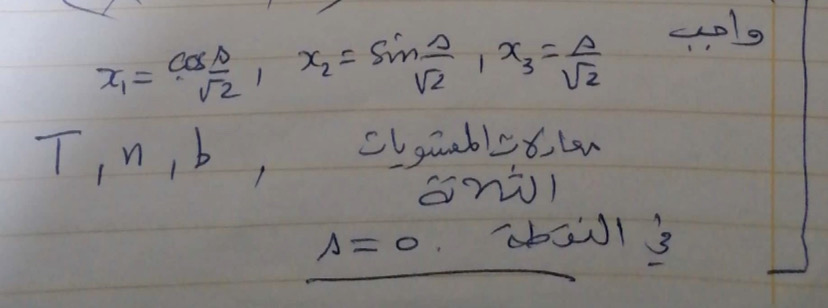 واجب
x₁ = cos s/√2 , x₂ = sin s/√2 , x₃ = s/√2
T , n , b , معادلات المستويات
الثلاثة
في النقطة s = 0.